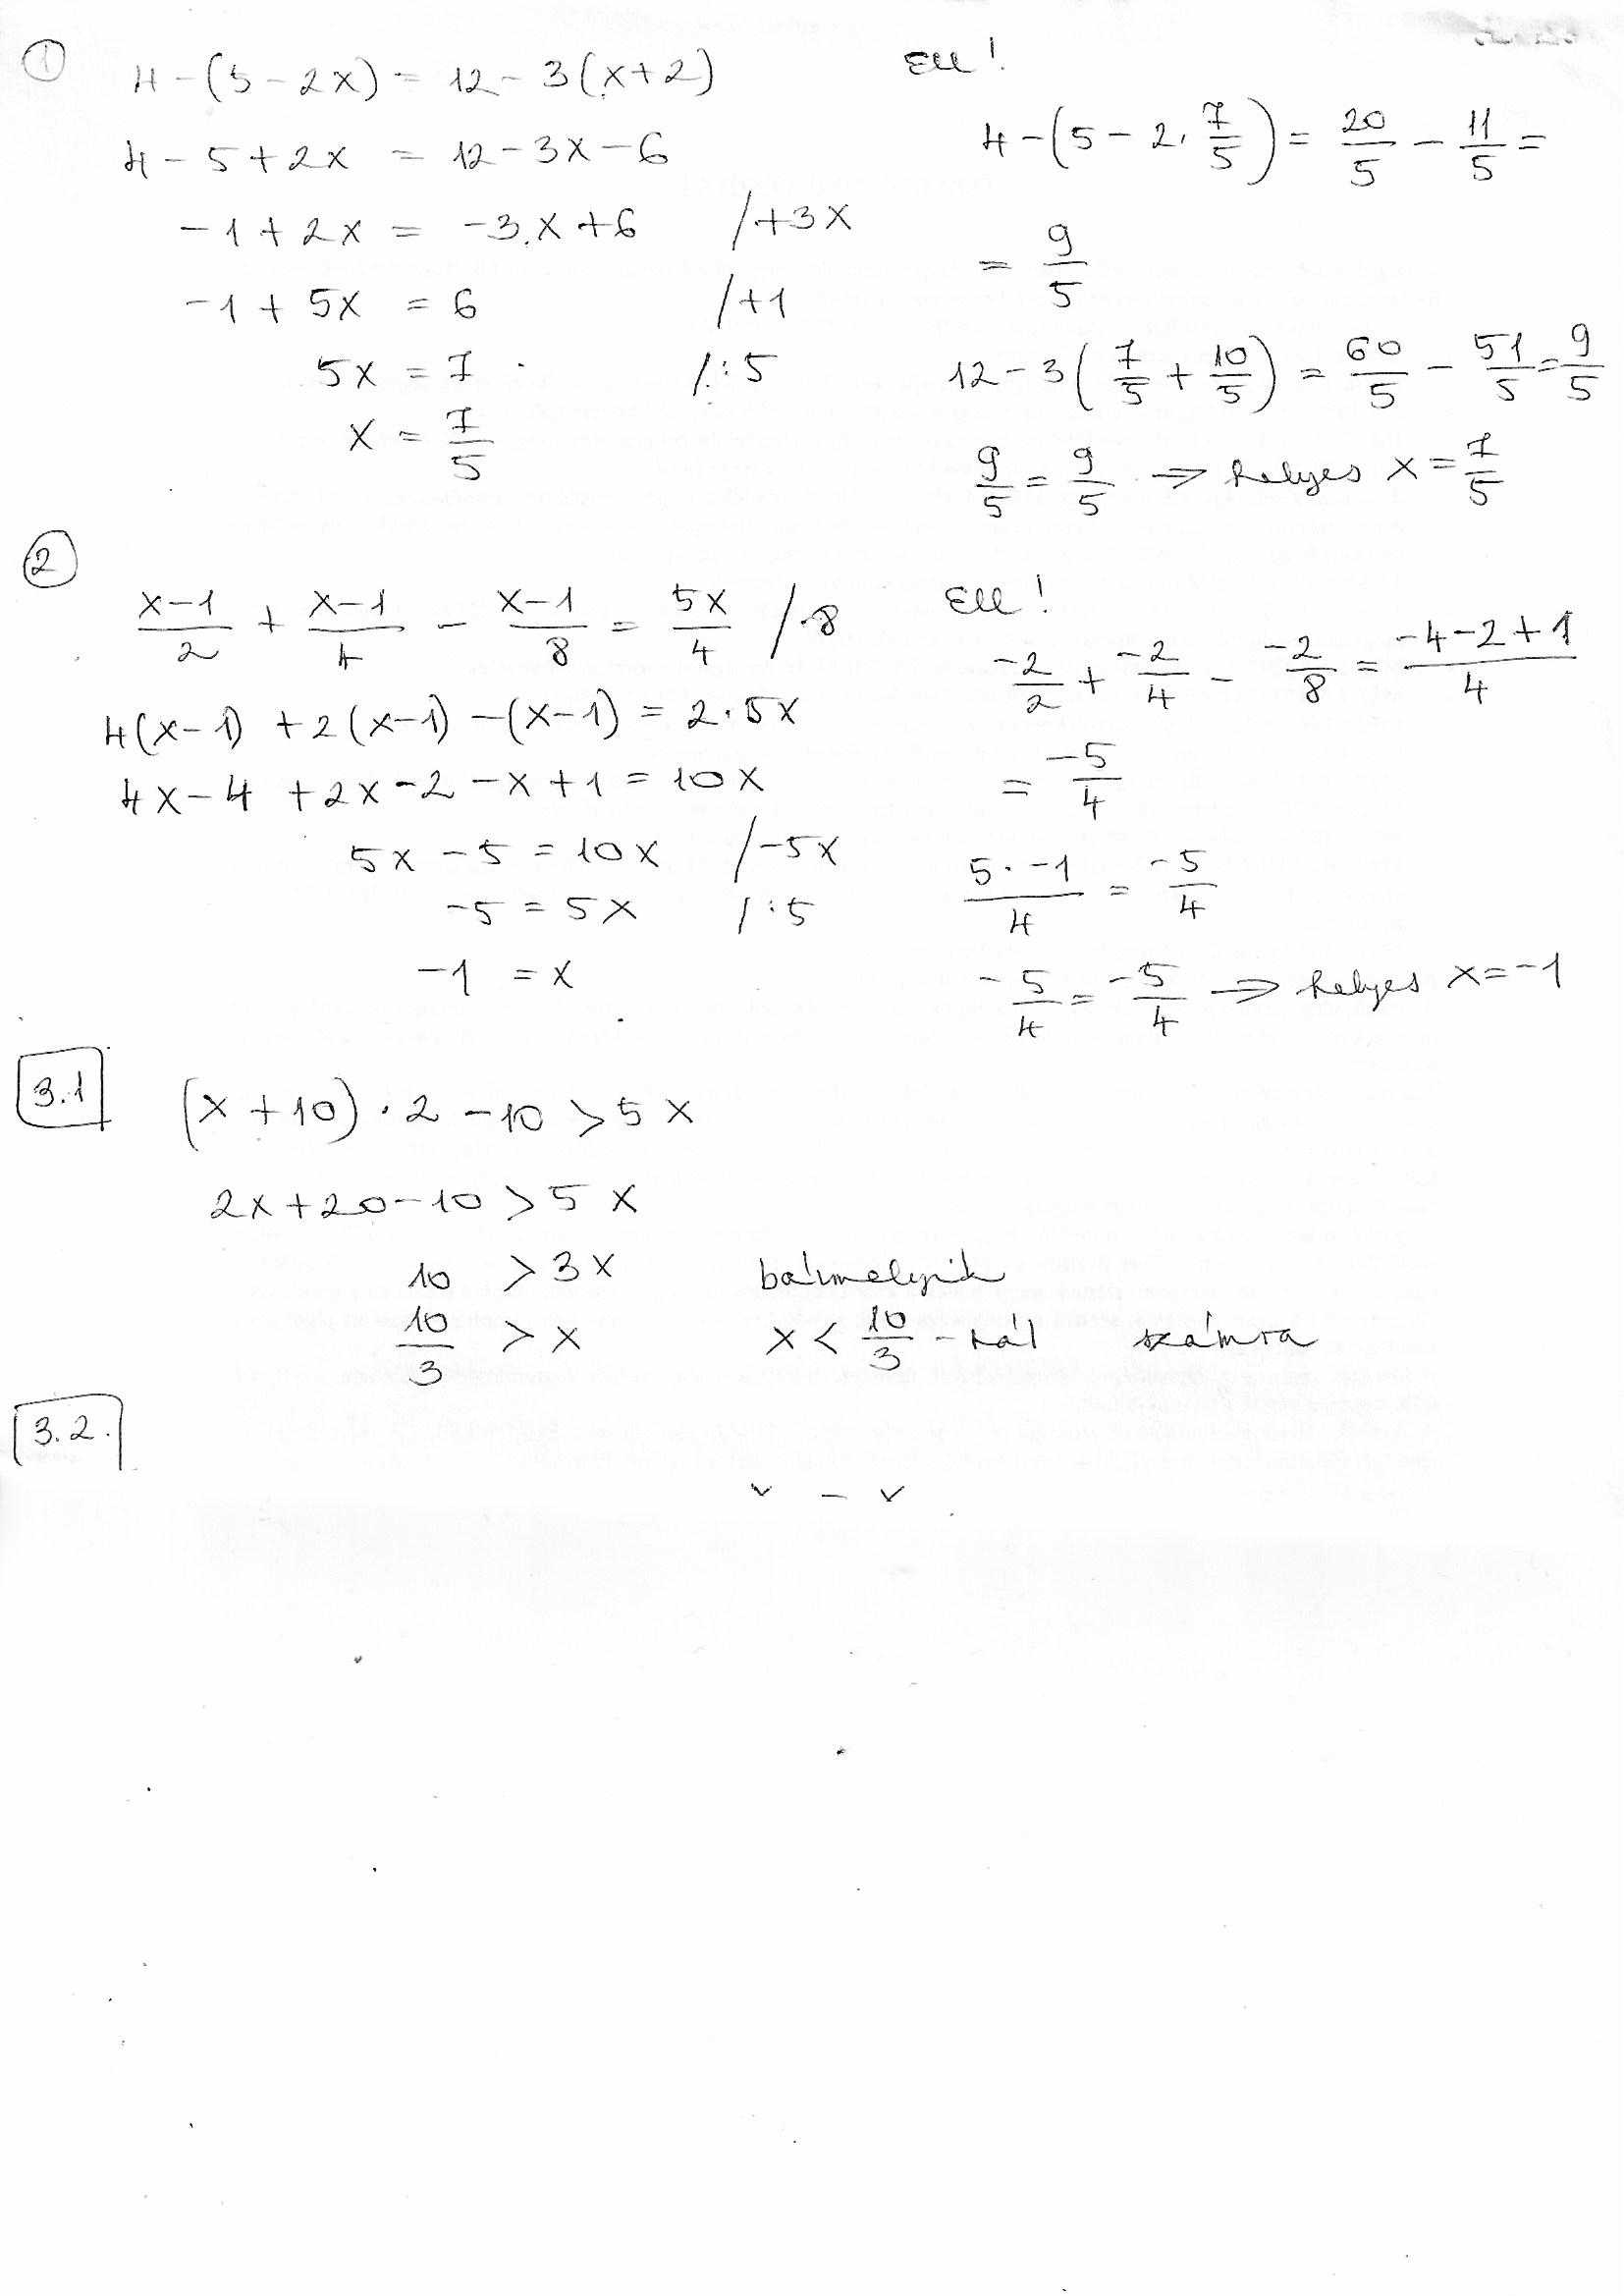 ①
4-(5-2x) = 12-3(x+2)
4-5+2x = 12-3x-6
-1+2x = -3x+6 /+3x
-1+5x = 6 /+1
5x = 7 /:5
x = 7/5
Ell!
4-(5-2·7/5) = 20/5 - 11/5 =
= 9/5
12-3(7/5 + 10/5) = 60/5 - 51/5 = 9/5
9/5 = 9/5 ⇒ helyes x = 7/5
②
x-1/2 + x-1/4 - x-1/8 = 5x/4 /·8
4(x-1) +2(x-1) -(x-1) = 2·5x
4x-4 +2x-2 -x+1 = 10x
5x-5 = 10x /-5x
-5 = 5x /:5
-1 = x
Ell!
-2/2 + -2/4 - -2/8 = -4-2+1/4
= -5/4
5·-1/4 = -5/4
-5/4 = -5/4 ⇒ helyes x=-1
3.1
(x+10)·2-10 > 5x
2x+20-10 > 5x
10 > 3x bármelyik
10/3 > x x < 10/3 -nál számra
3.2.